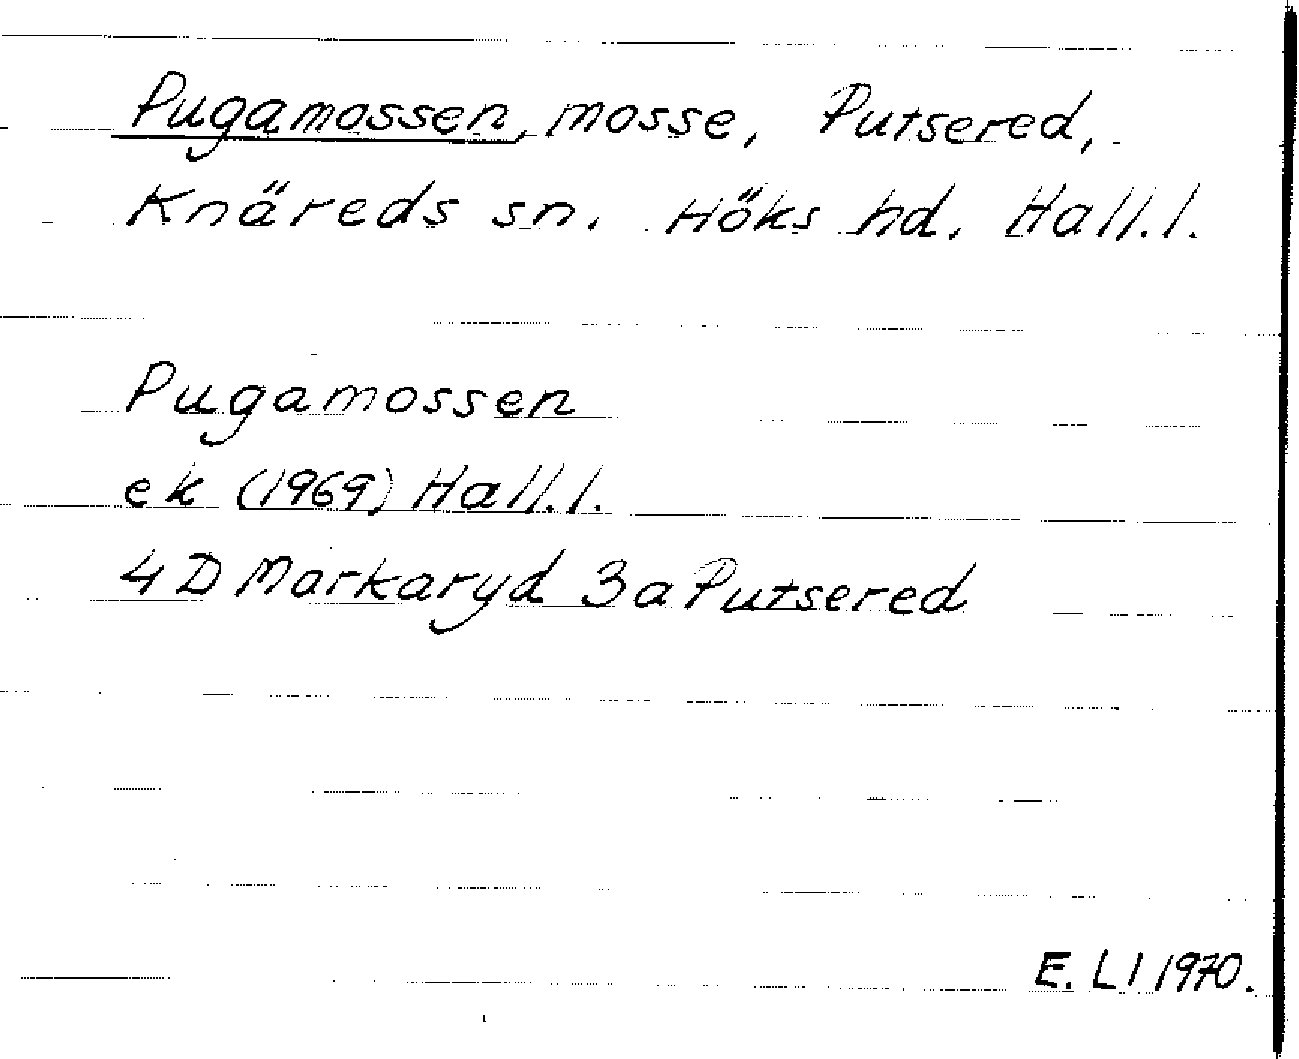 Pugamossen, mosse, Putsered,
Knäreds sn. Höks hd. Hall.l.
Pugamossen
ek (1969) Hall.l.
4 D Markaryd 3a Putsered
E. Ll 1970.